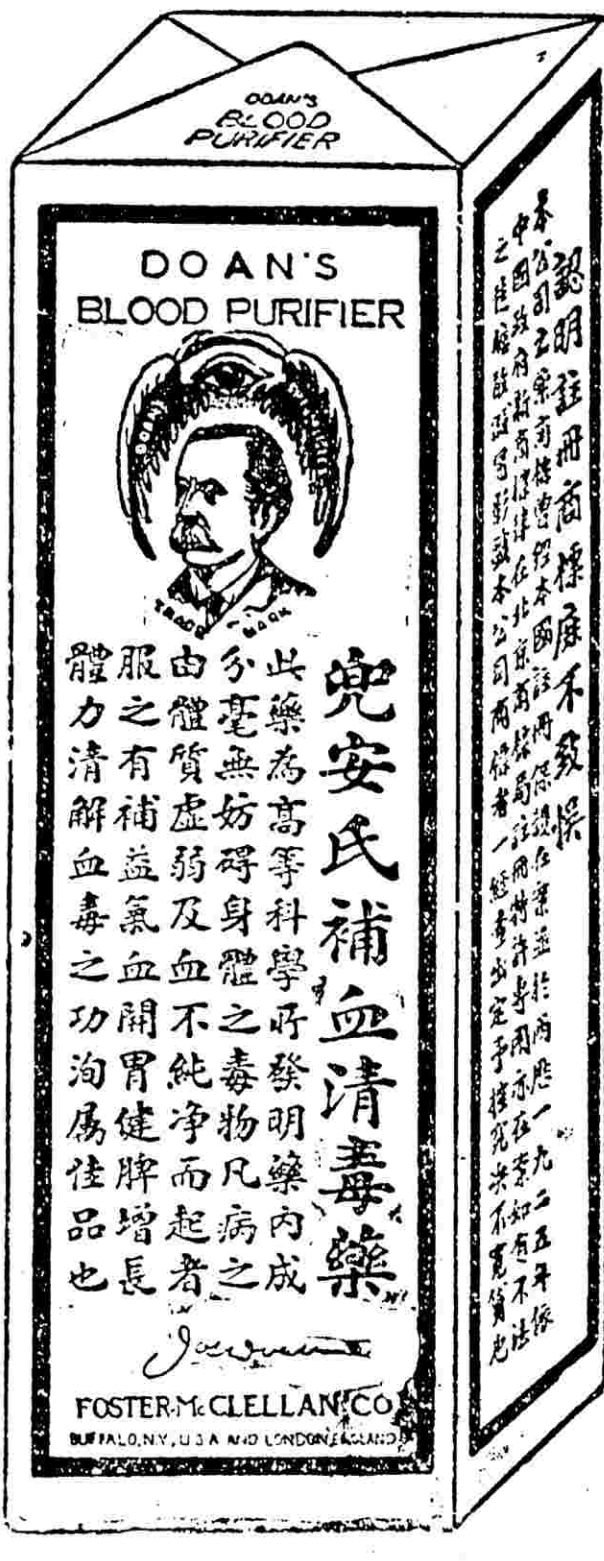 DOAN'S
BLOOD
PURIFIER
DOAN'S
BLOOD PURIFIER
TRADE MARK
兜安氏補血清毒藥
此藥為高等科學所發明藥內成
分毫無妨碍身體之毒物凡病之
由體質虛弱及血不純净而起者
服之有補益氣血開胃健脾增長
體力清解血毒之功洵屬佳品也
FOSTER-McCLELLAN CO
BUFFALO, N.Y., U.S.A AND LONDON, ENGLAND
認明註冊商標庶不致悞
本公司之藥商標曾經本國註冊保護在案並於西歷一九二五年依
中國政府新商標律在北京商標局註冊特許專用亦在案如有不法
之徒胆敢改冒影戤本公司商標者一經查出定予控究決不寬貸也